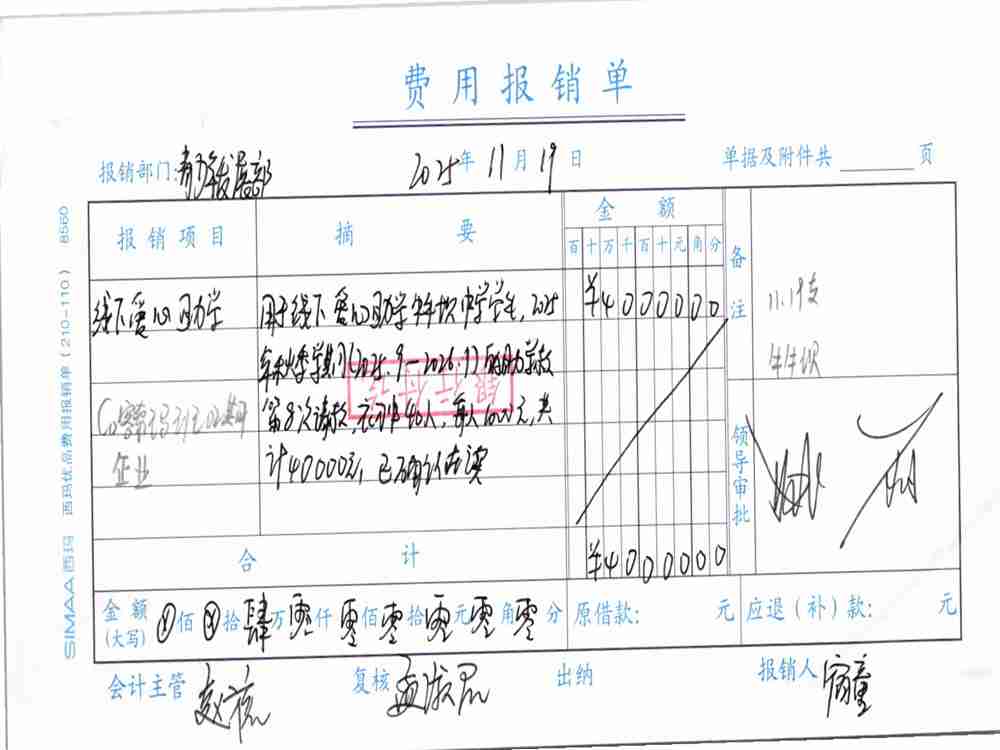 费用报销单
报销部门: 2025年11月19日 单据及附件共 页
报销项目 摘要 金额 备注
百十万千百十元角分
线下爱心助学 用于线下爱心助学 中学学生,2025 ¥4000000 11.19支
年秋季学期(2025.9-2026.1)的助学款
第8次请款, 40人,每人1000元,共
企业 计40000元,已确认在读
领导审批
合计 ¥4000000
金额(大写) 佰 拾肆万零仟零佰零拾零元零角零分 原借款: 元 应退(补)款: 元
会计主管 复核 出纳 报销人
SIMAA西玛 西玛优品费用报销单(210-110) 8560